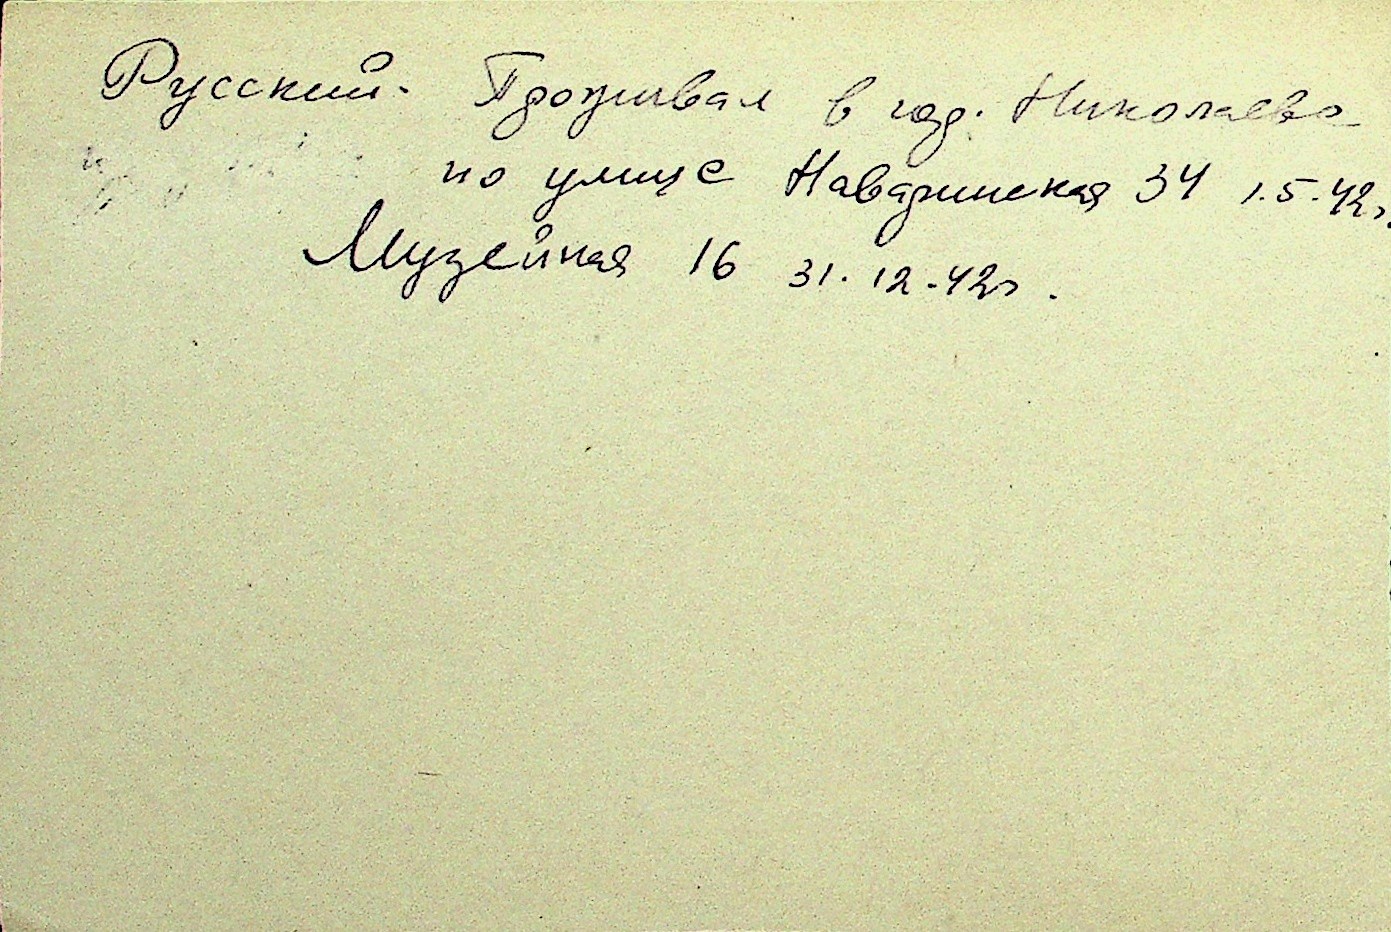 Русский. Проживал в гор. Николаеве
по улице Наваринская 34 1.5.42г.
Музейная 16 31.12.42г.